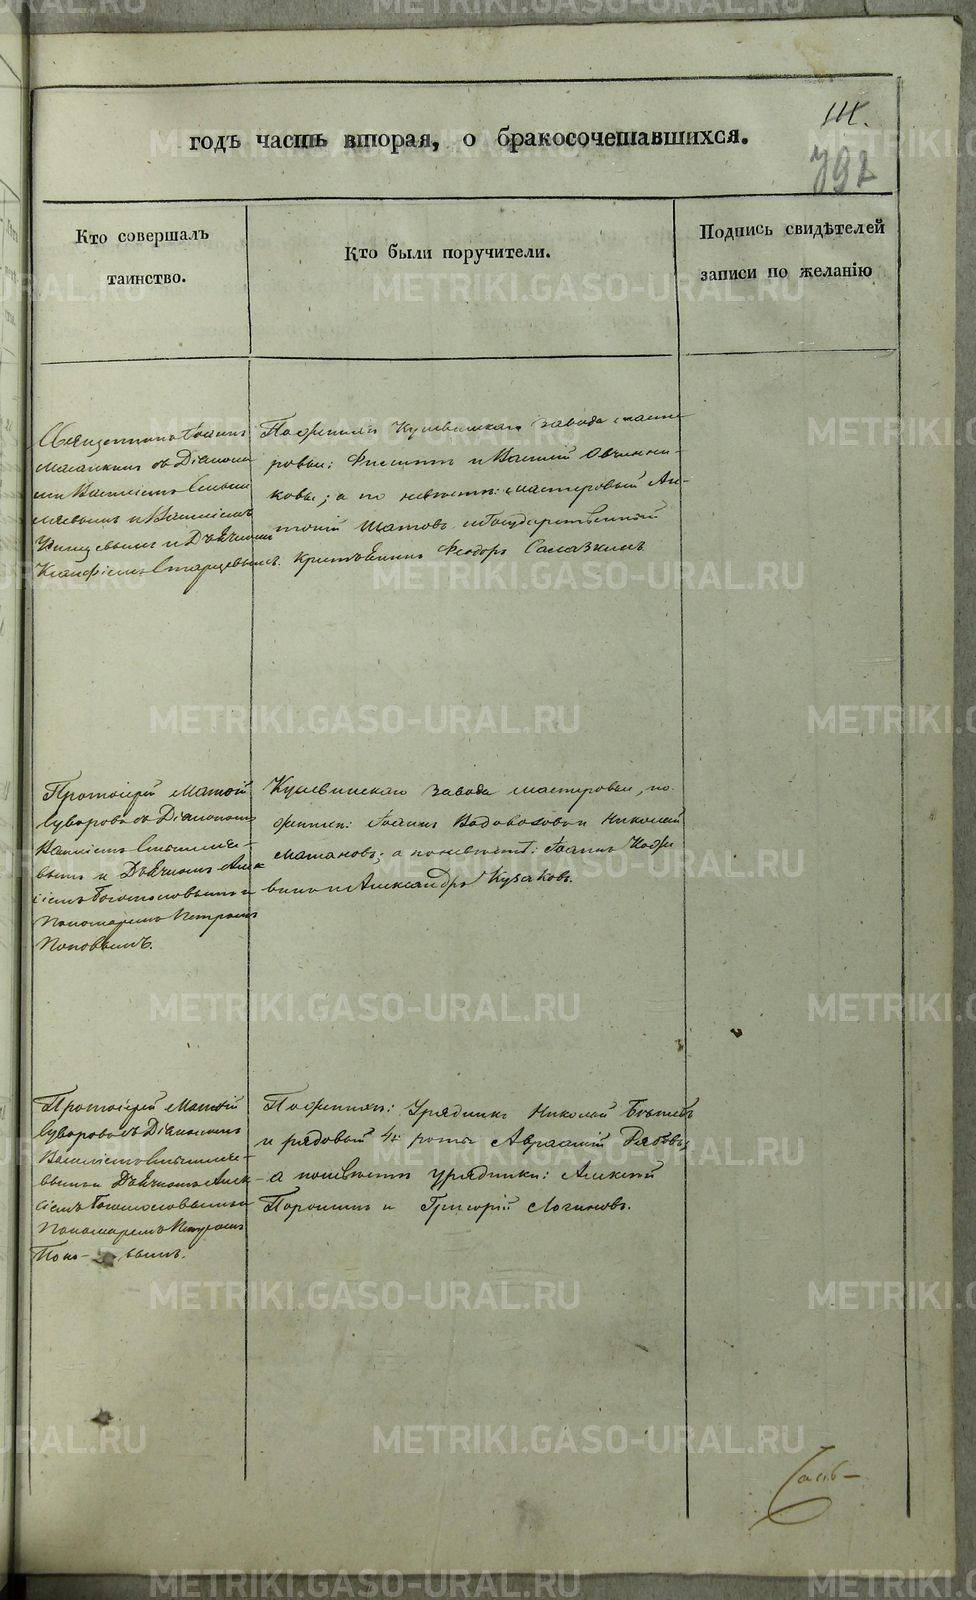 годъ часть вторая, о бракосочетавшихся.
792
Кто совершалъ
таинство.
Кто были поручители.
Подпись свидѣтелей
записи по желанію
Священникъ Іоаннъ
съ Діакона
ми Василіемъ
и Василіемъ
и Дьячкомъ
Старцевымъ.
По женихѣ Кушвинскаго завода масте
ровые: и Василій Овчинни-
ковы; а по невѣстѣ: мастеровый Ан-
тоній Шатовъ и Государственный
крестьянинъ Феодоръ Салазкинъ
Протоіерей Матѳій
Суворовъ съ Діакономъ
Василіемъ
вымъ и Дьячкомъ Алек
сіемъ Богословымъ и
Пономаремъ Петромъ
Поповымъ.
Кушвинскаго завода мастеровые, по
женихѣ: Іоаннъ Водовозовъ и Николай
а по невѣстѣ: Іоаннъ
и Александръ Кузаковъ.
Протоіерей Матѳій
Суворовъ съ Діакономъ
Василіемъ
вымъ и Дьячкомъ Алек
сіемъ Богословымъ и
Пономаремъ Петромъ
Попо- вымъ.
По женихѣ: Урядникъ Николай
и рядовый 4й роты Аврамій Рябовъ,
а по невѣстѣ урядники: Алексѣй
Порошинъ и Григорій Логиновъ.
METRIKI.GASO-URAL.RU